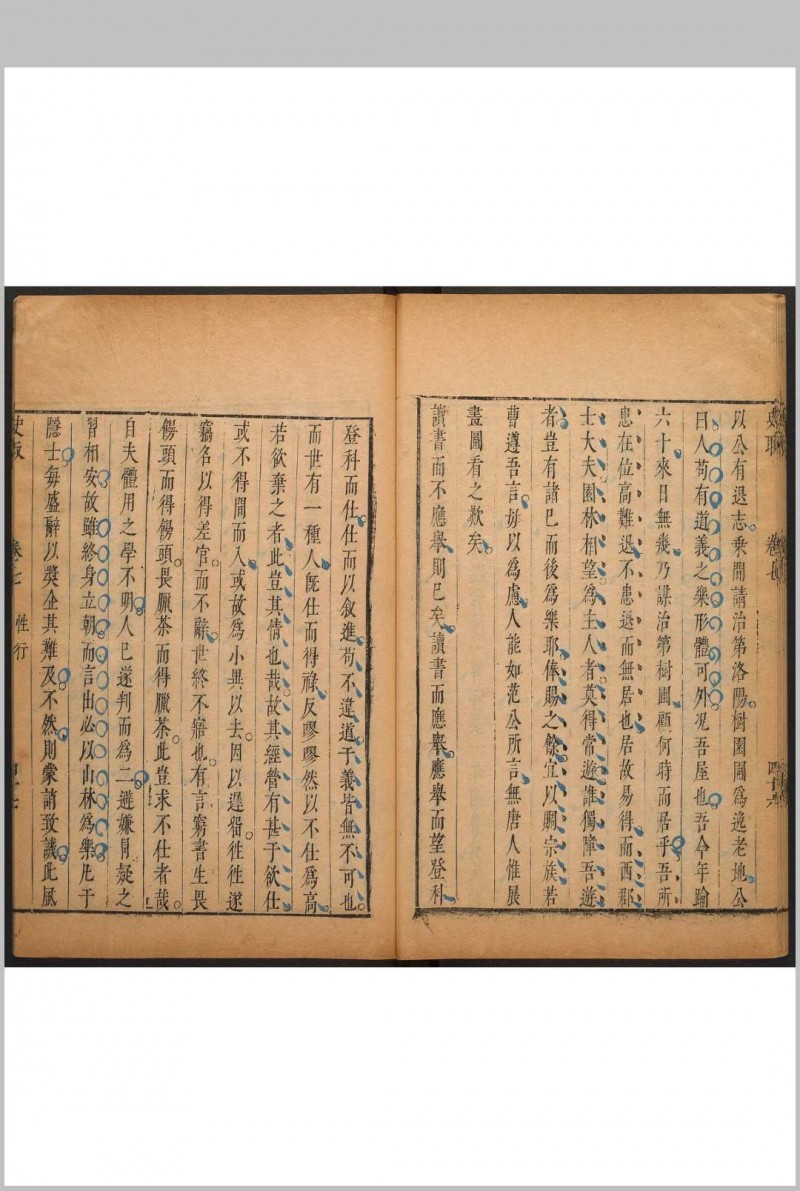 史取 卷七 四十六
以公有退志乘間請治第洛陽樹園圃爲逸老地公
曰人苟有道義之樂形體可外况吾屋也吾今年踰
六十來日無幾乃謀治第樹圃顧何時而居乎吾所
患在位高難退不患退而無居也居故易得而西都
士大夫園林相望爲主人者莫得常遊誰獨障吾遊
者豈有諸已而後爲樂耶俸賜之餘宜以賙宗族若
曹遵吾言毋以爲慮人能如范公所言無唐人惟展
畫圖看之歎矣
讀書而不應舉則已矣讀書而應舉應舉而望登科
登科而仕仕而以叙進苟不違道于義皆無不可也
而世有一種人旣仕而得祿反嘐嘐然以不仕爲高
若欲棄之者此豈其情也哉故其經營有甚于欲仕
或不得間而入或故爲小異以去因以遲留徃徃遂
竊名以得差官而不辭世終不寤也有言窮書生畏
餺頭而得餺頭畏臘茶而得臘茶此豈求不仕者哉
自夫體用之學不明人已遂判而爲二避嫌冐疑之
習相安故雖終身立朝而言出必以山林爲樂凢于
隱士每盛辭以奬企其難及不然則衆請致譏此風
史取 卷七 性行 四十七